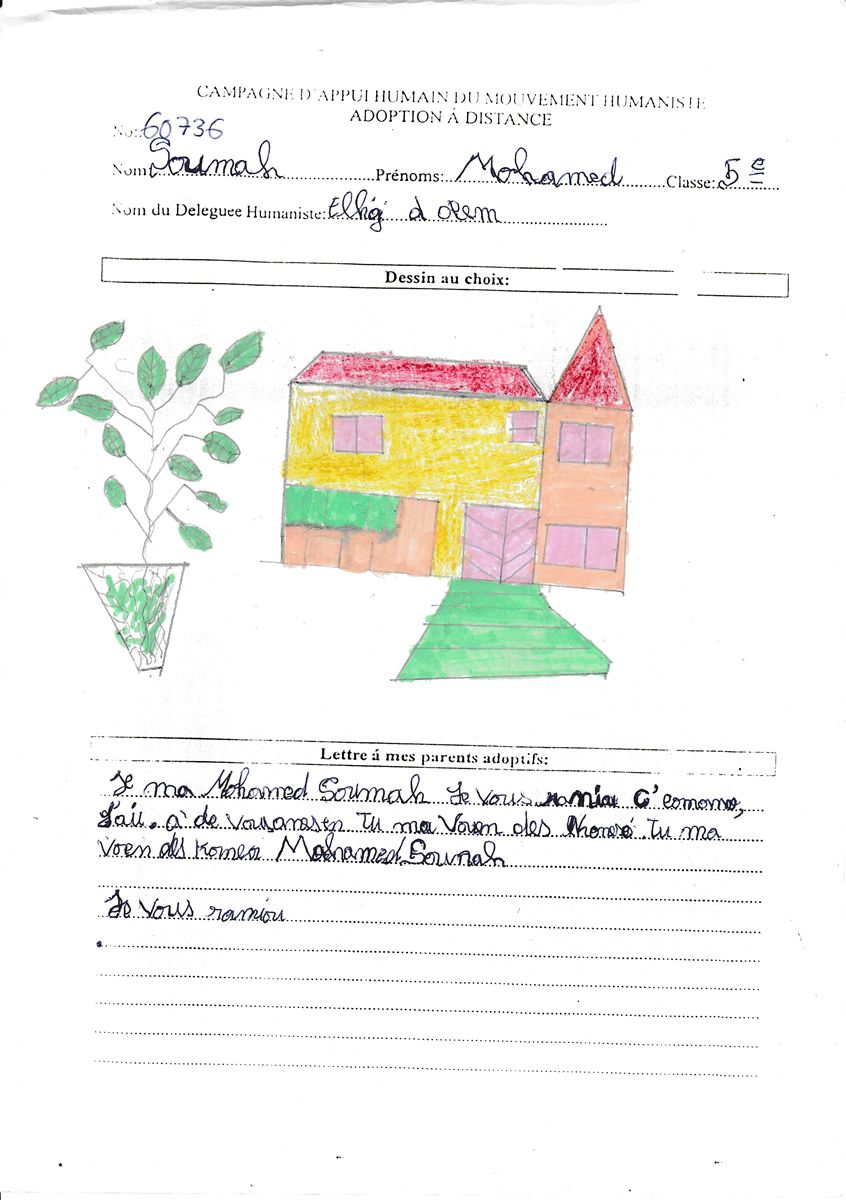 CAMPAGNE D'APPUI HUMAIN DU MOUVEMENT HUMANISTE
ADOPTION À DISTANCE
No:.60736
Nom: Soumah Prénoms: Mohamed Classe: 5e
Nom du Deleguee Humaniste:
Dessin au choix:
Lettre á mes parents adoptifs:
Je ma Mohamed Soumah Je vous
de Tu ma voyen des Tu ma
voen des Mohamed Soumah
Je vous ramiou